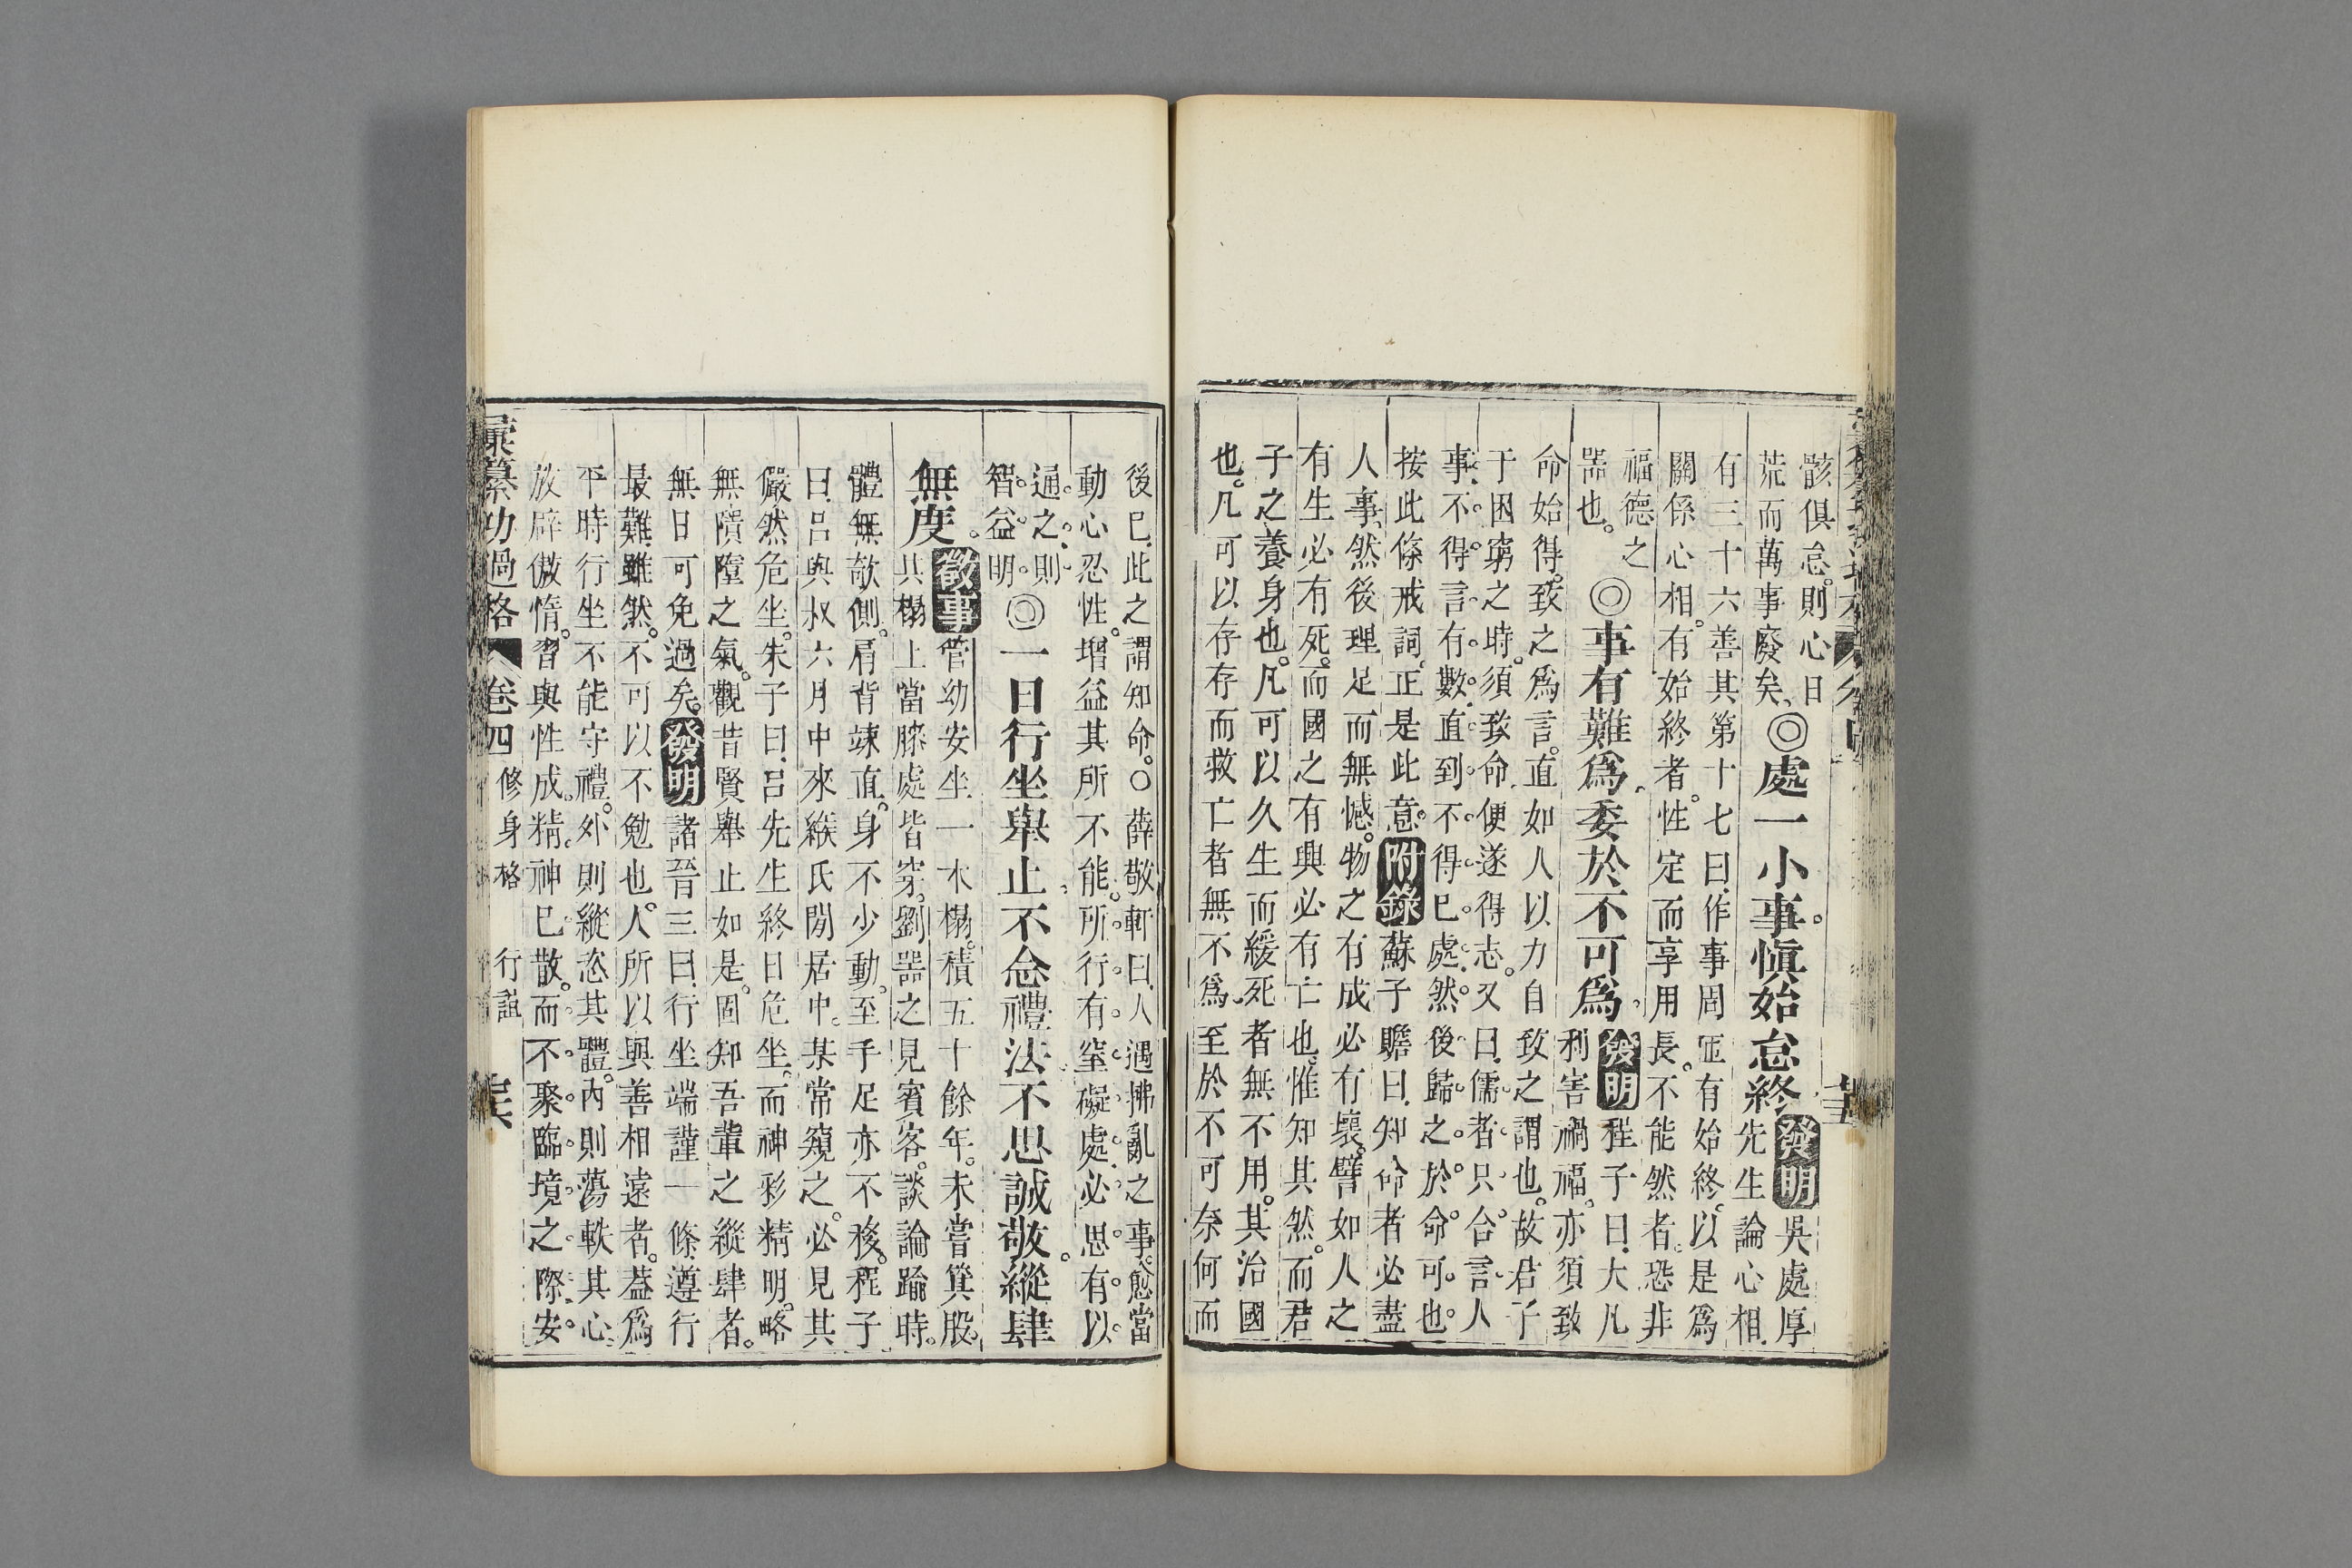 骸俱怠。則心日
荒而萬事廢矣。◎處一小事。慎始怠終發明吳處厚
先生論心相。
有三十六善其第十七曰。作事周匝有始終。以是爲
關係心相。有始終者。性定而享用長。不能然者。恐非
福德之
器也。◎事有難爲。委於不可爲。發明程子曰。大凡
利害禍福。亦須致
命始得。致之爲言。直如人以力自致之謂也。故君子
于困窮之時。須致命。便遂得志。又曰。儒者只合言人
事。不得言有數。直到不得已處。然後歸之於命可也。
按此條戒詞。正是此意。附錄蘇子瞻曰。知命者必盡
人事。然後理足而無憾。物之有成必有壞。譬如人之
有生必有死。而國之有興必有亡也。惟知其然。而君
子之養身也。凡可以久生而緩死者無不用。其治國
也。凡可以存存而救亡者無不爲。至於不可奈何而
後已。此之謂知命。○薛敬軒曰。人遇拂亂之事。愈當
動心忍性。增益其所不能。所行有窒礙處。必思有以
通之。則
智益明。◎一日行坐舉止。不合禮法。不思誠敬。縱肆
無度。徵事管幼安坐一木榻。積五十餘年。未嘗箕股。
共榻上當膝處皆穿。劉器之見賓客。談論踰時。
體無欹側。肩背竦直。身不少動。至手足亦不移。程子
曰。呂與叔六月中來緱氏閒居中。某常窺之。必見其
儼然危坐。朱子曰。呂先生終日危坐。而神彩精明。略
無隤墮之氣。觀昔賢舉止如是。固知吾輩之縱肆者。
無日可免過矣。發明諸晉三曰。行坐端謹一條。遵行
最難。雖然。不可以不勉也。人所以與善相遠者。葢爲
平時行坐不能守禮。外則縱恣其體。內則蕩軼其心
放辟傲惰。習與性成。精神已散。而不聚。臨境之際。安
彙纂功過格 卷四 修身格 行誼